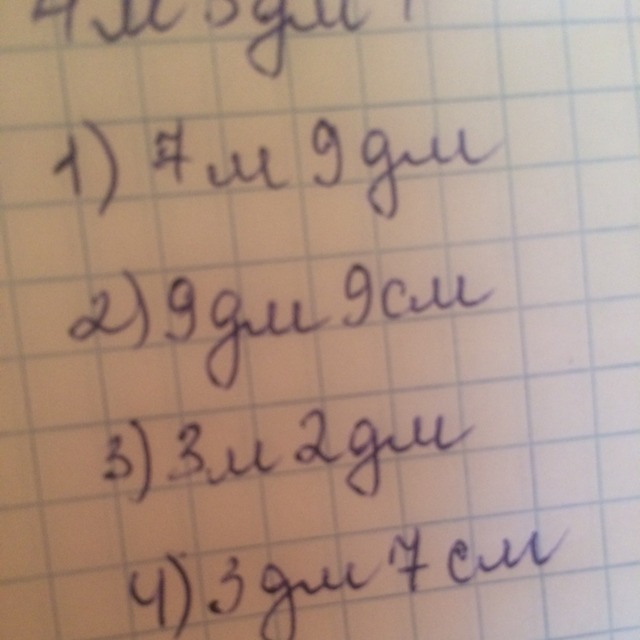 4 м 3 дм
1) 7 м 9 дм
2) 9 дм 9 см
3) 3 м 2 дм
4) 3 дм 7 см